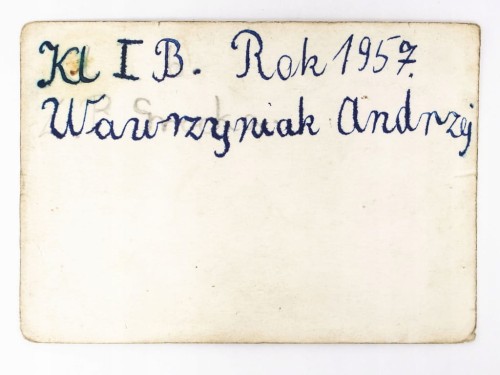 Kl I B. Rok 1957.
Wawrzyniak Andrzej